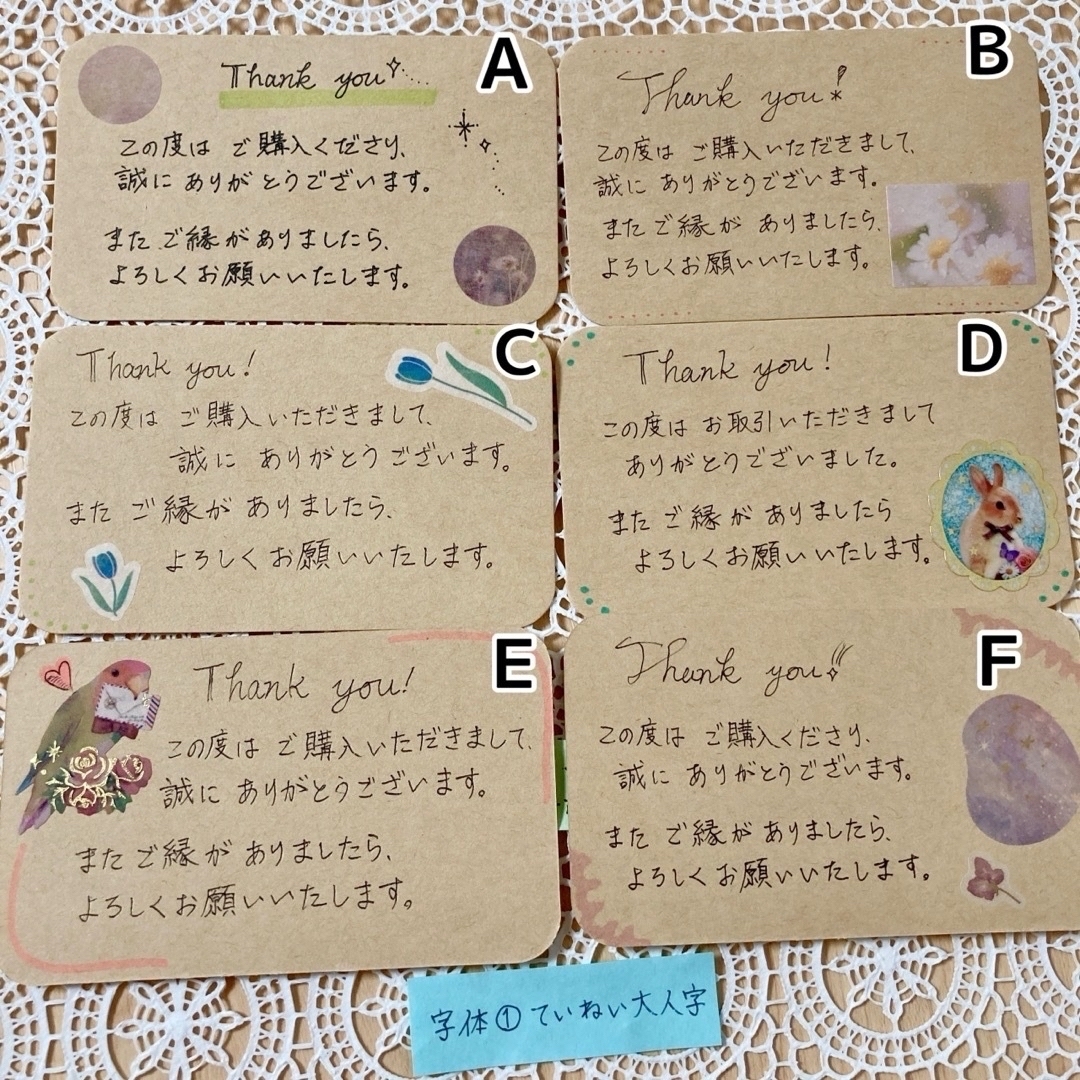 A
Thank you
この度は ご購入くださり、
誠に ありがとうございます。
また ご縁が ありましたら、
よろしくお願いいたします。
B
Thank you!
この度は ご購入いただきまして、
誠に ありがとうございます。
また ご縁が ありましたら、
よろしくお願いいたします。
C
Thank you!
この度は ご購入いただきまして、
誠に ありがとうございます。
また ご縁が ありましたら、
よろしくお願いいたします。
D
Thank you!
この度は お取引いただきまして
ありがとうございました。
また ご縁が ありましたら
よろしくお願いいたします。
E
Thank you!
この度は ご購入いただきまして、
誠に ありがとうございます。
また ご縁が ありましたら、
よろしくお願いいたします。
F
Thank you!
この度は ご購入くださり、
誠に ありがとうございます。
また ご縁が ありましたら、
よろしくお願いいたします。
字体①ていねい大人字